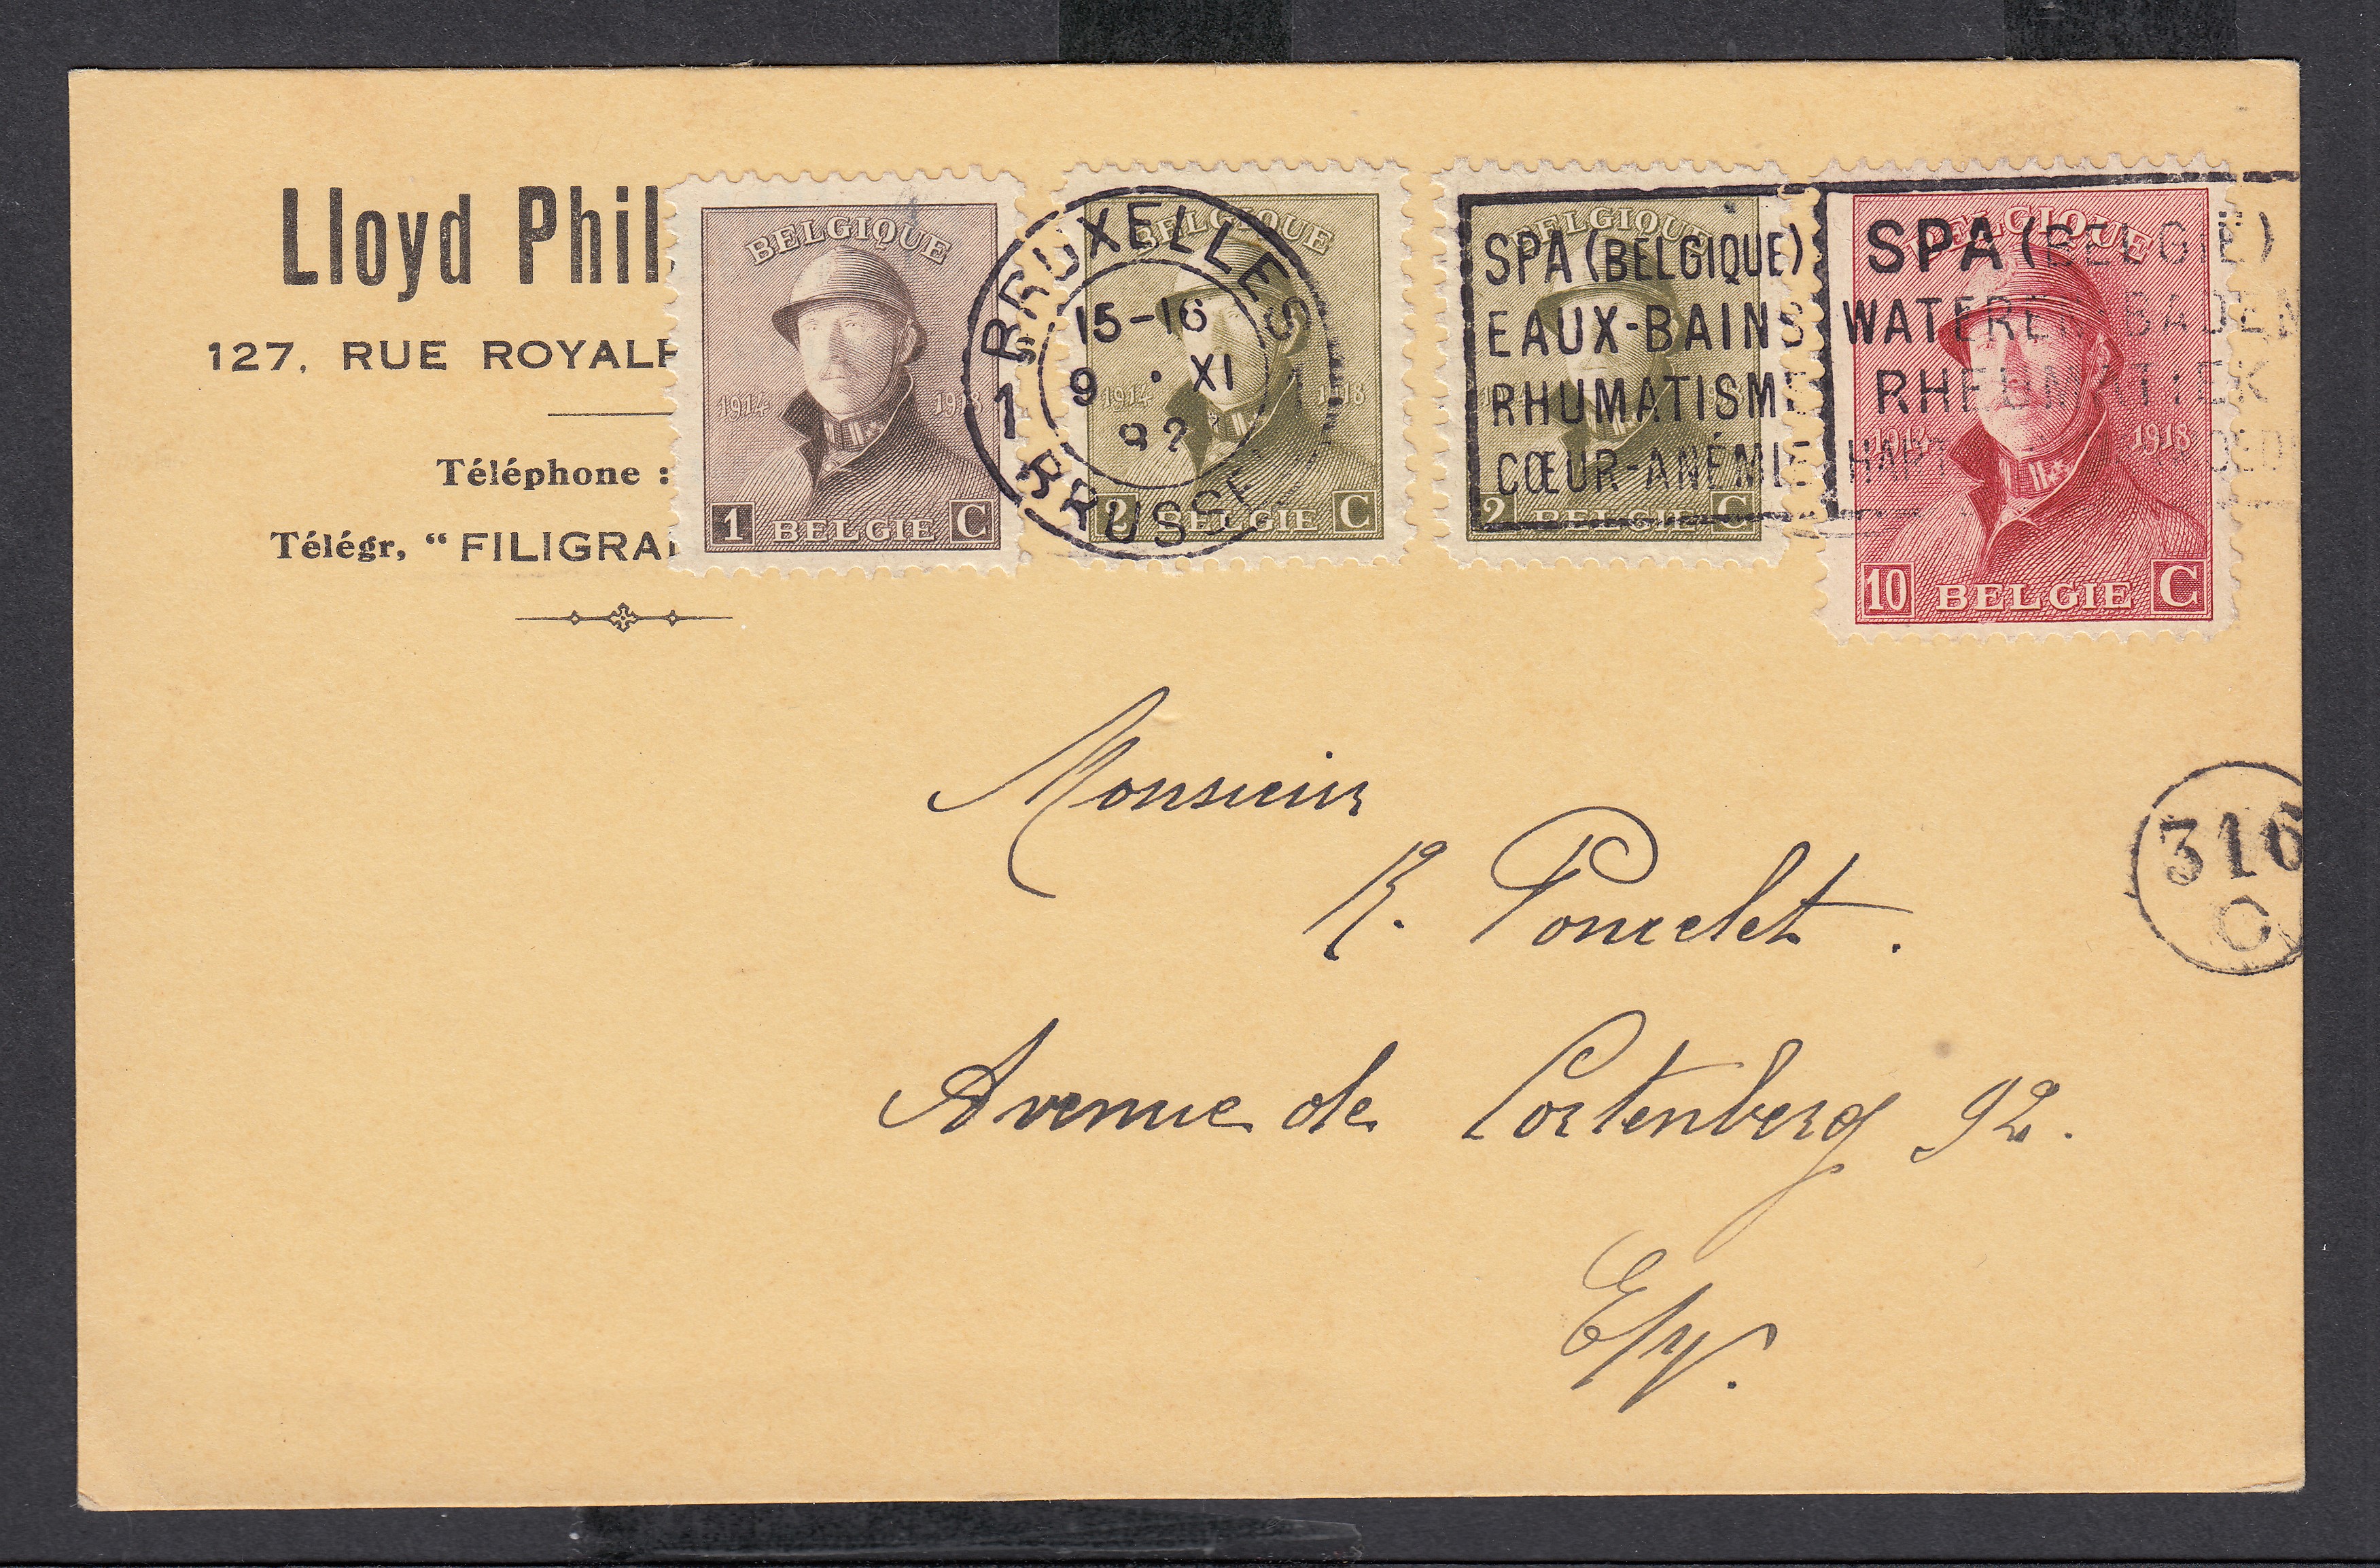 Lloyd Phil
127, RUE ROYALE
Téléphone :
Télégr, “FILIGRA
BELGIQUE
1914 1918
1 BELGIE C
BELGIQUE
1914 1918
2 BELGIE C
BELGIQUE
2 BELGIE C
BELGIQUE
1918
10 BELGIE C
1 BRUXELLES 1
15-16
9 · XI
BRUSSEL
SPA (BELGIQUE)
EAUX-BAINS
RHUMATISME
CŒUR-ANÉMIE
SPA (BELGIË)
WATEREN BADEN
RHEUMATIEK
HART
316
C
Monsieur
R. Poncelet.
Avenue de Cortenberg 92.
E/V.